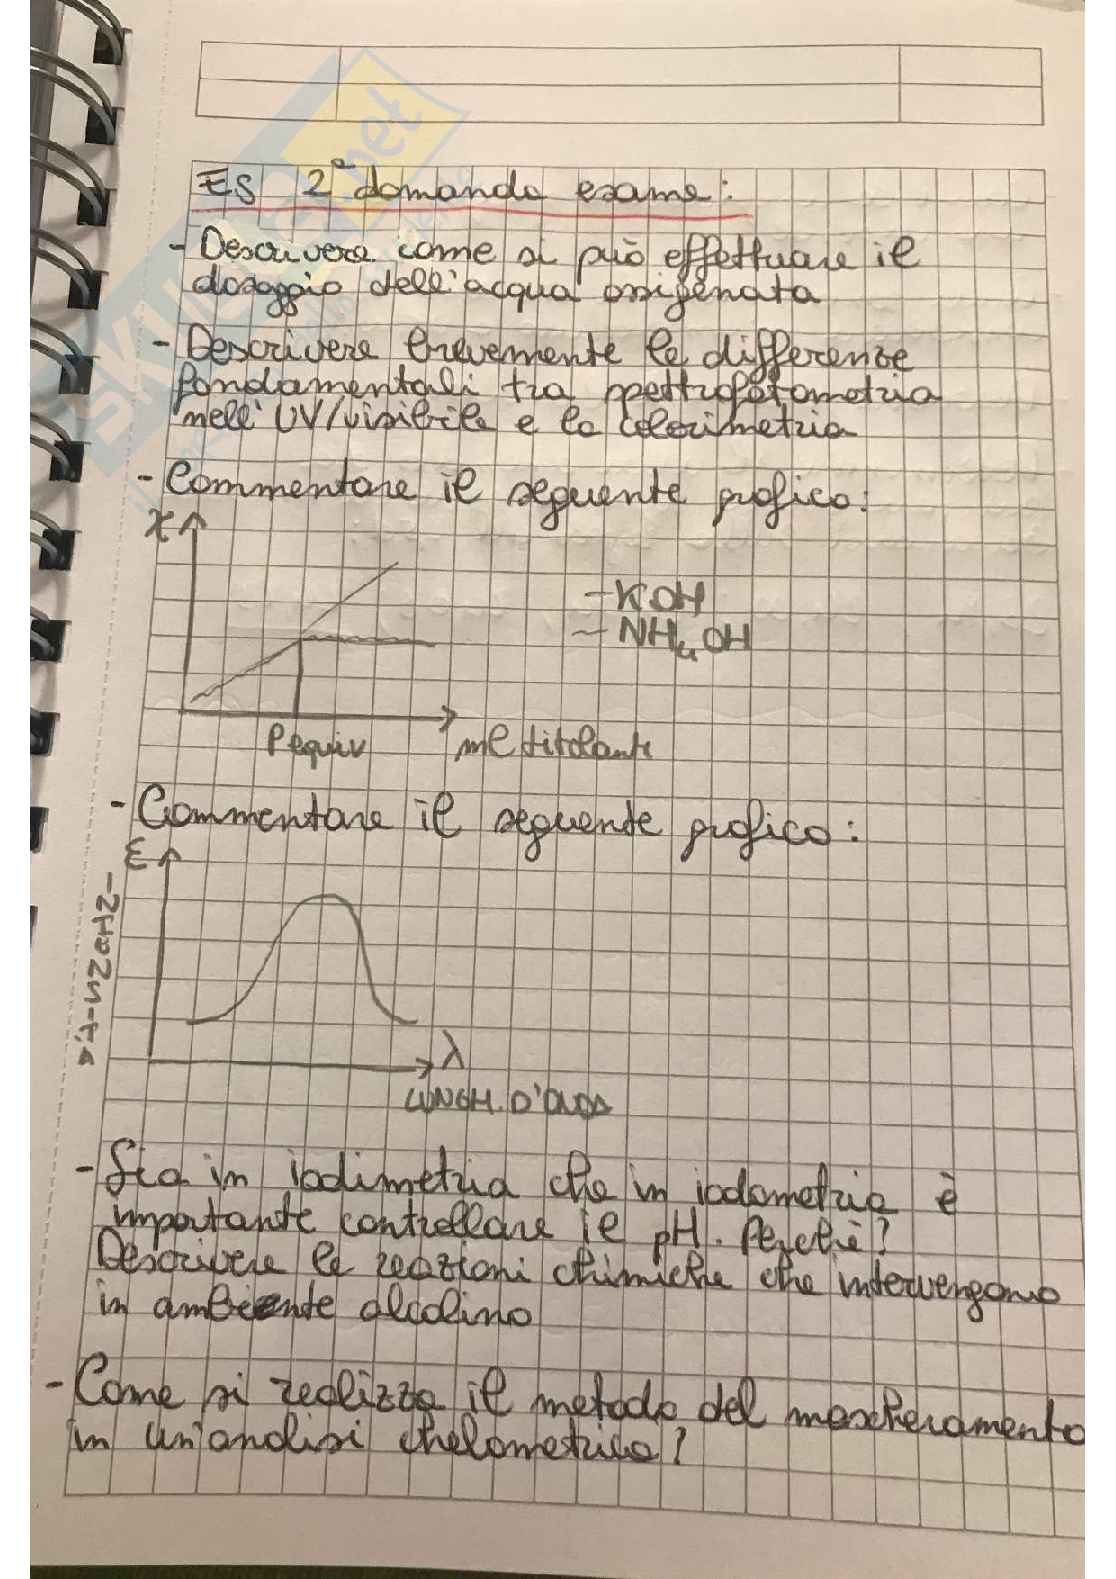 ES 2ª domanda esame:
- Descrivere come si può effettuare il
dosaggio dell'acqua ossigenata
- Descrivere brevemente le differenze
fondamentali tra spettrofotometria
nell'UV/visibile e la colorimetria
- Commentare il seguente grafico:
χ
- KOH
~ NH4OH
P equiv
ml titolante
- Commentare il seguente grafico:
ε
λ
LUNGH. D'ONDA
- Sia in iodimetria che in iodometria è
importante controllare il pH. Perché?
Descrivere le reazioni chimiche che intervengono
in ambiente alcalino
- Come si realizza il metodo del mascheramento
in un'analisi chelometrica?